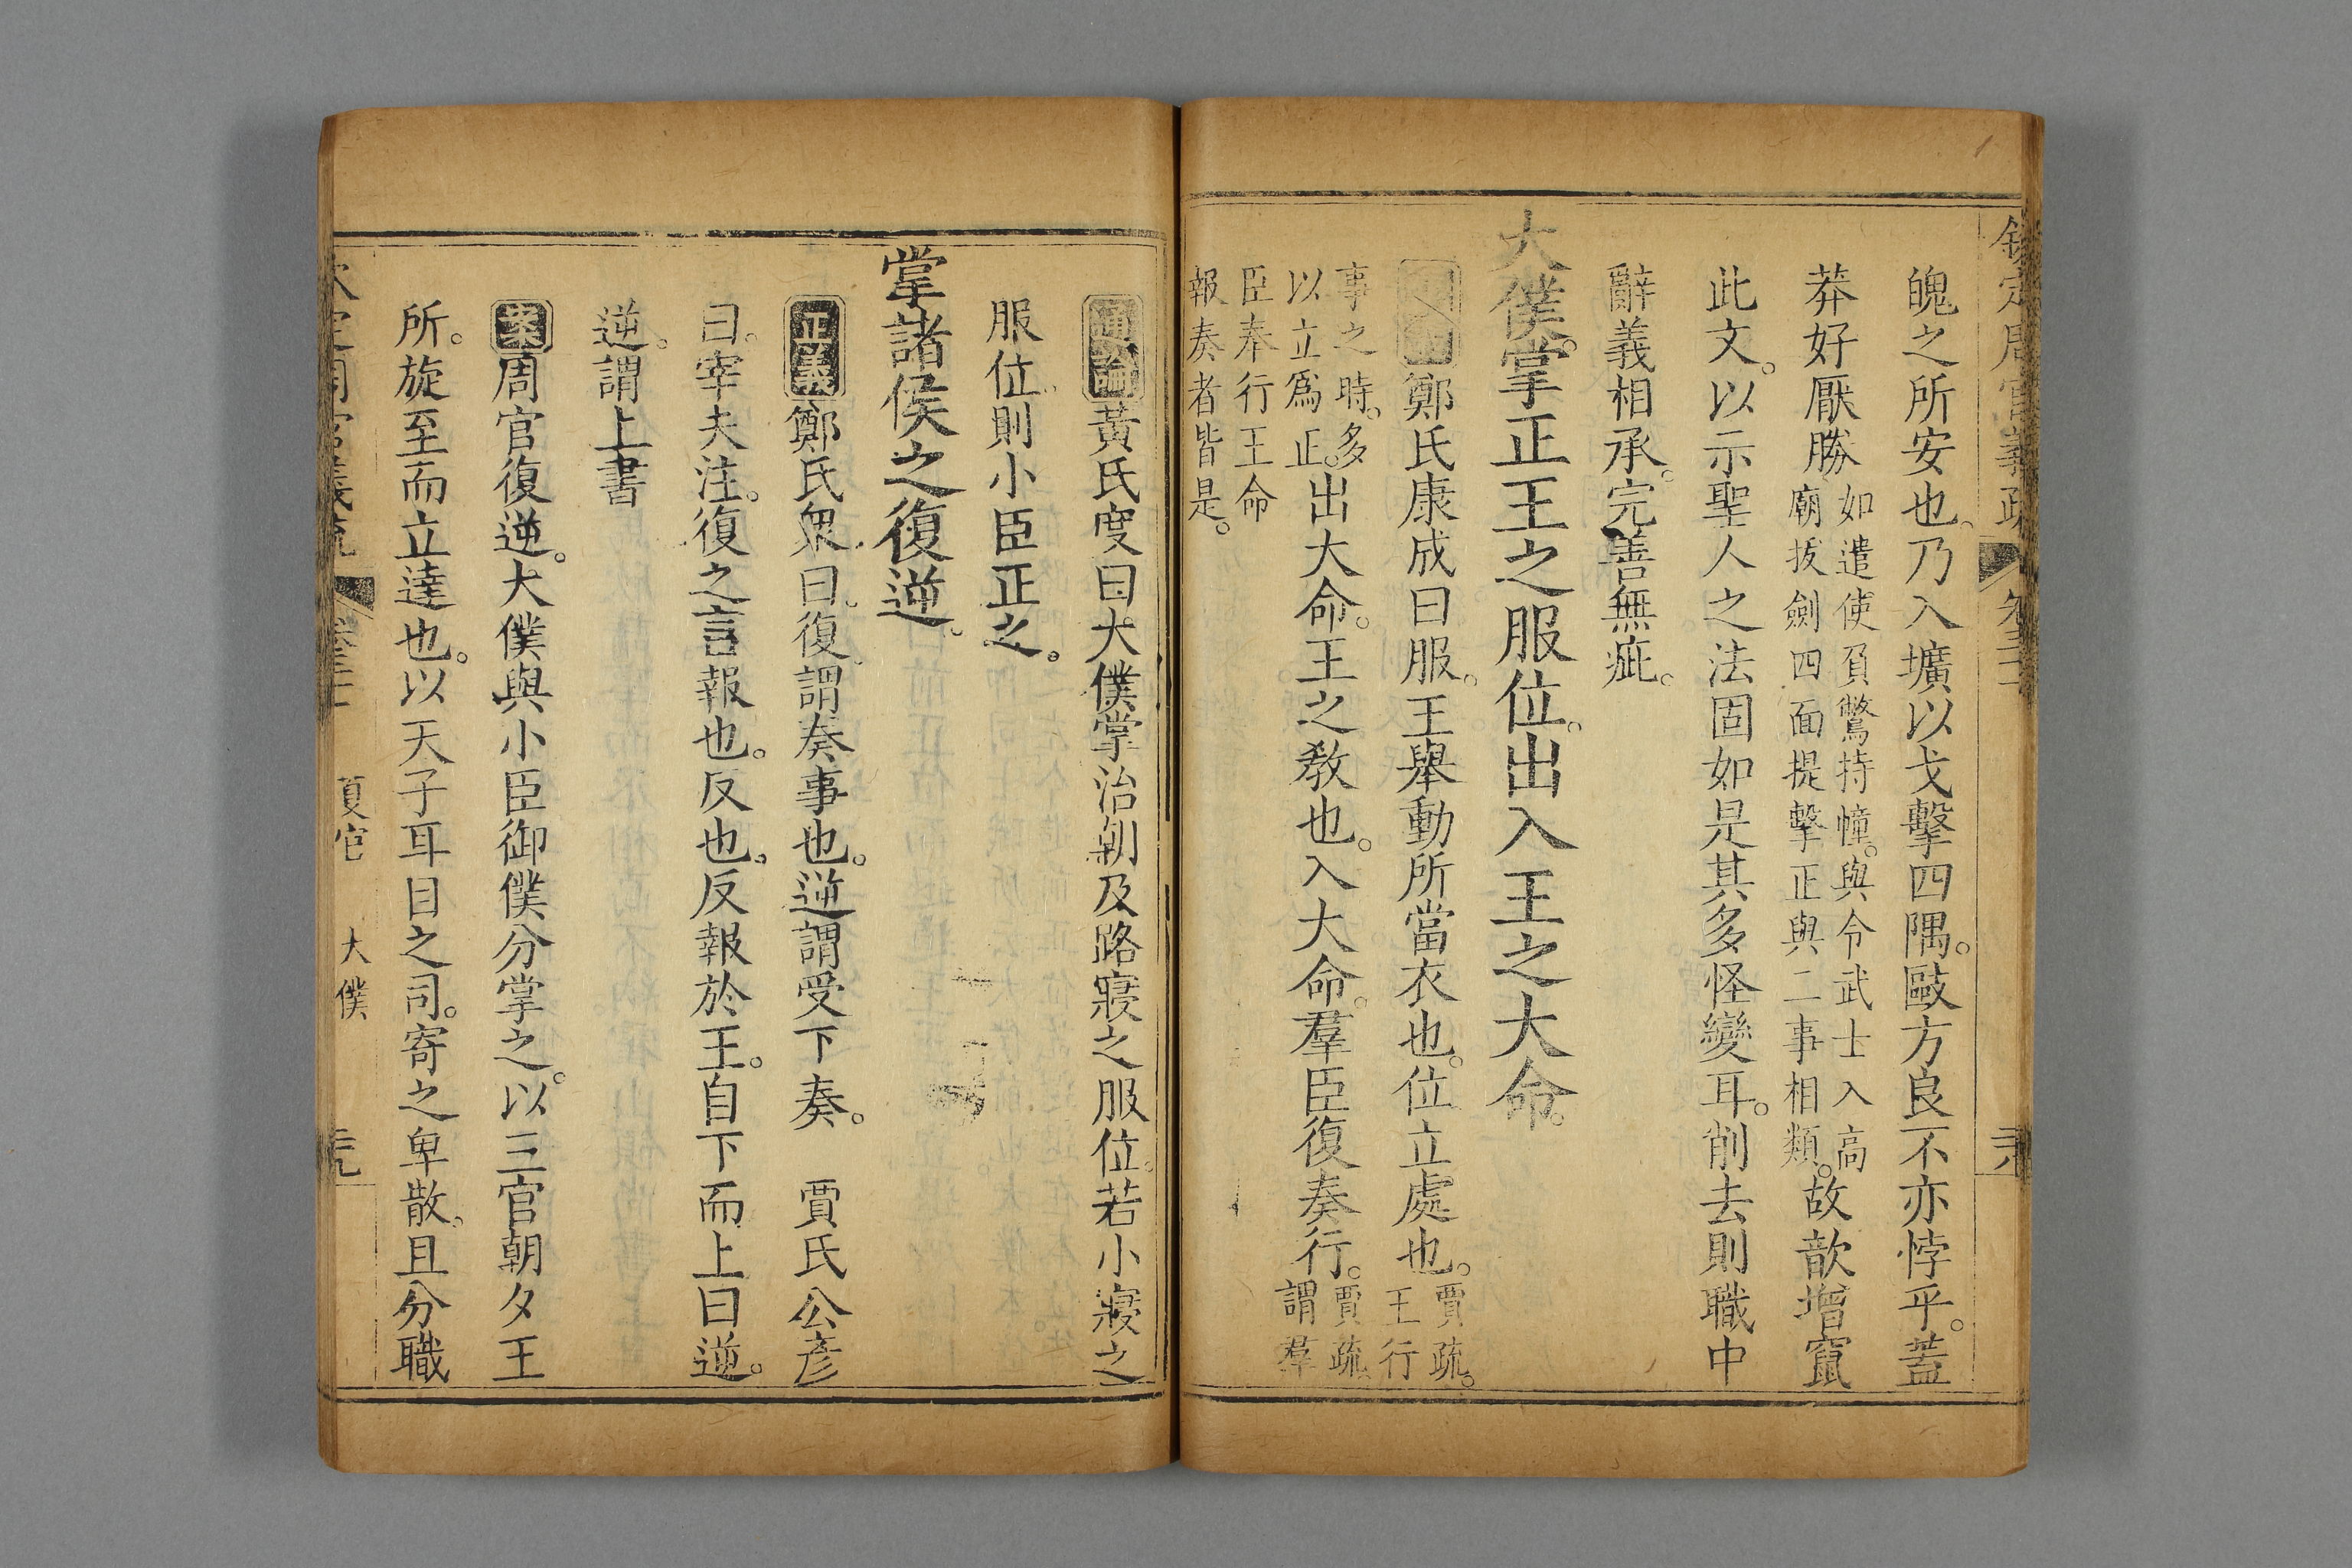 欽定周官義疏 卷三十一
魄之所安也。乃入壙以戈擊四隅。敺方良不亦悖乎。蓋
莽好厭勝如遣使負鷩持幢。與令武士入高
廟拔劍四面提擊正與二事相類。故歆增竄
此文。以示聖人之法固如是其多怪變耳。削去則職中
辭義相承。完善無疵。
大僕。掌正王之服位。出入王之大命。
鄭氏康成曰服。王舉動所當衣也。位立處也。賈疏。
王行
事之時。多
以立爲正。出大命。王之教也。入大命。羣臣復奏行。賈疏
謂羣
臣奉行王命
報奏者皆是。
通論黃氏度曰大僕掌治朝及路寢之服位。若小寢之
服位。則小臣正之。
掌諸侯之復逆。
正義鄭氏眾曰。復謂奏事也。逆謂受下奏。 賈氏公彥
曰。宰夫注。復之言報也。反也。反報於王。自下而上曰逆。
逆。謂上書
案周官復逆。大僕與小臣御僕分掌之。以三官朝夕王
所。旋至而立達也。以天子耳目之司。寄之卑散。且分職
欽定周官義疏 卷三十一 夏官 大僕